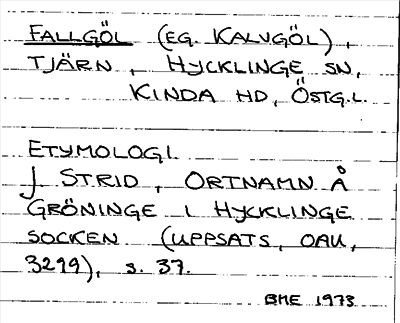 FALLGÖL (EG. KALVGÖL),
TJÄRN, HYCKLINGE SN,
KINDA HD, ÖSTG.L.
ETYMOLOGI.
J. STRID, ORTNAMN Å
GRÖNINGE I HYCKLINGE
SOCKEN (UPPSATS, OAU,
3299), s. 37.
BME 1973